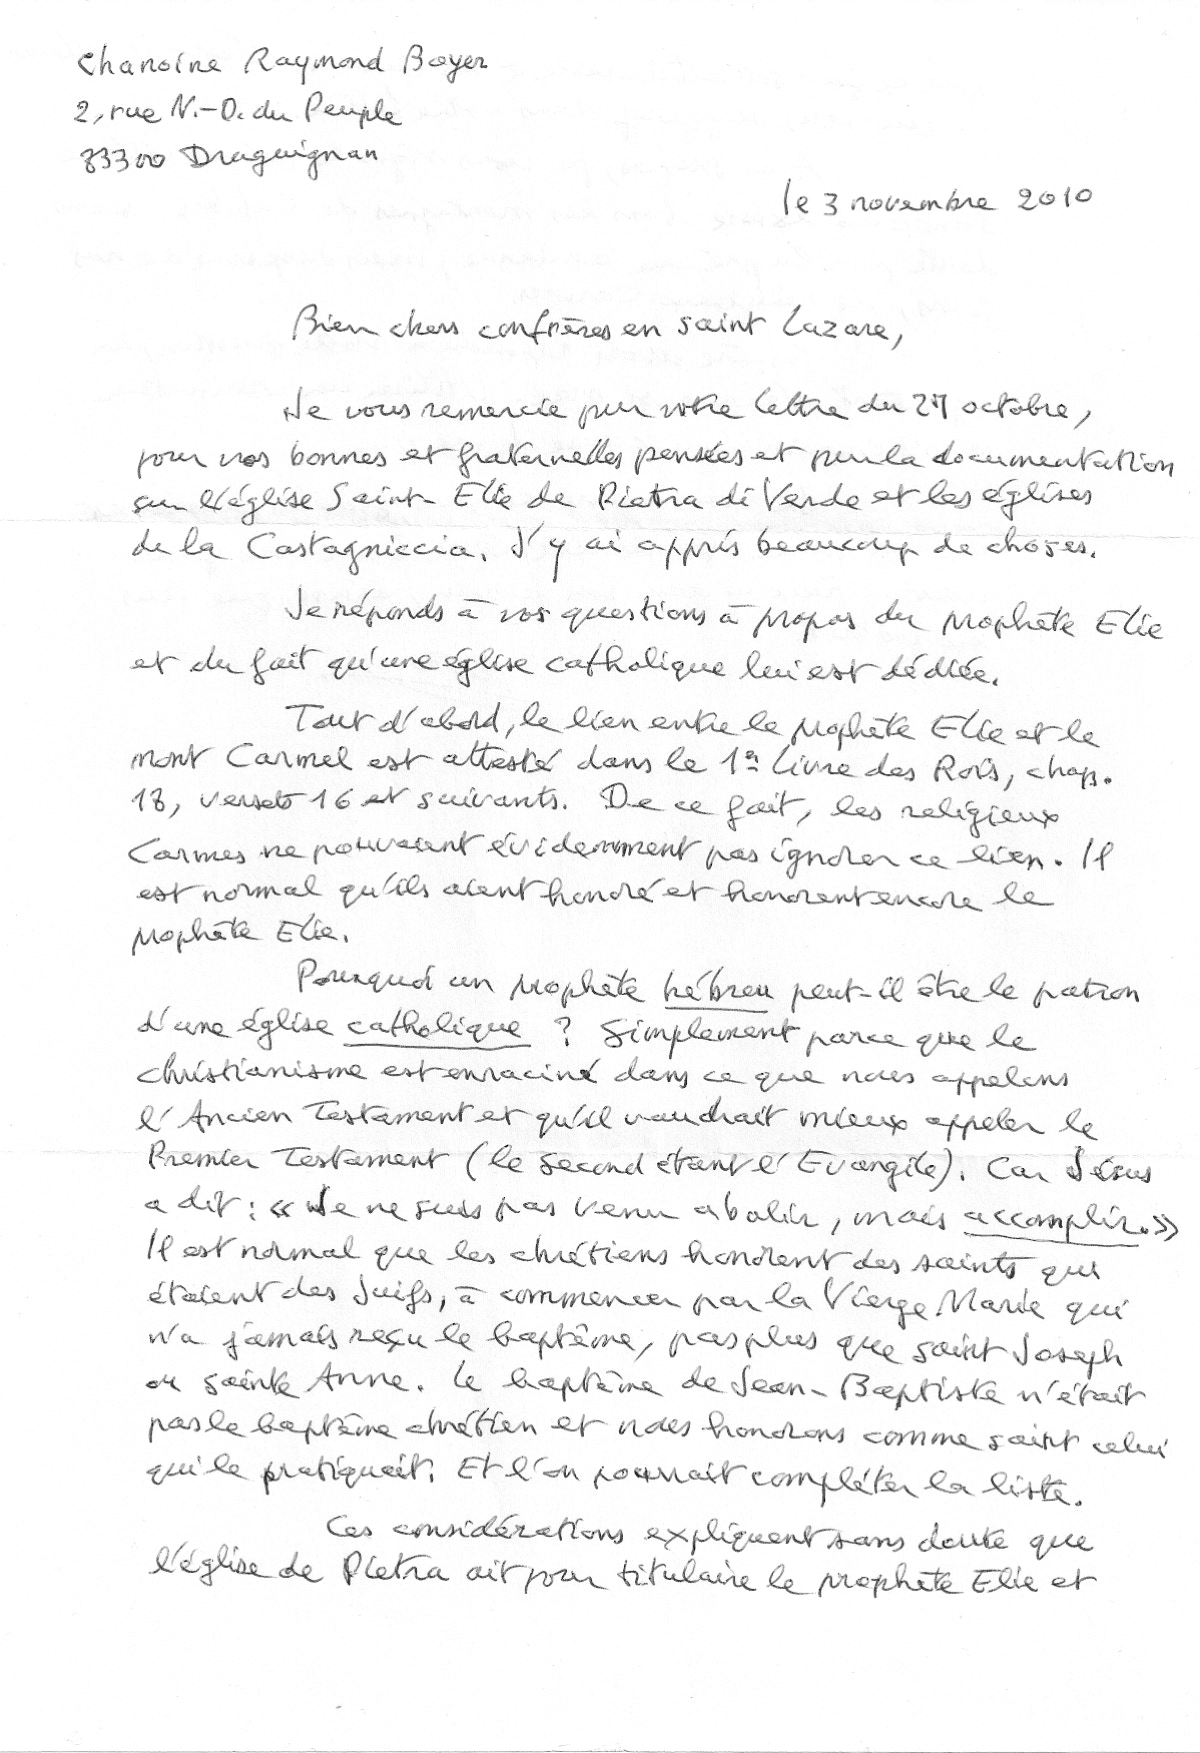 Chanoine Raymond Boyer
2, rue N.-D. du Peuple
83300 Draguignan
le 3 novembre 2010
Bien chers confrères en saint Lazare,
Je vous remercie pour votre lettre du 27 octobre,
pour vos bonnes et fraternelles pensées et pour la documentation
sur l'église Saint-Elie de Pietra di Verde et les églises
de la Castagniccia. J'y ai appris beaucoup de choses.
Je réponds à vos questions à propos du prophète Elie
et du fait qu'une église catholique lui est dédiée.
Tout d'abord, le lien entre le prophète Elie et le
mont Carmel est attesté dans le 1er Livre des Rois, chap.
18, versets 16 et suivants. De ce fait, les religieux
Carmes ne pouvaient évidemment pas ignorer ce lien. Il
est normal qu'ils aient honoré et honorent encore le
prophète Elie.
Pourquoi un prophète hébreu peut-il être le patron
d'une église catholique ? Simplement parce que le
christianisme est enraciné dans ce que nous appelons
l'Ancien Testament et qu'il vaudrait mieux appeler le
Premier Testament (le second étant l'Evangile). Car Jésus
a dit : « Je ne suis pas venu abolir, mais accomplir. »
Il est normal que les chrétiens honorent des saints qui
étaient des Juifs, à commencer par la Vierge Marie qui
n'a jamais reçu le baptême, pas plus que saint Joseph
ou sainte Anne. Le baptême de Jean-Baptiste n'était
pas le baptême chrétien et nous honorons comme saint celui
qui le pratiquait. Et l'on pourrait compléter la liste.
Ces considérations expliquent sans doute que
l'église de Pietra ait pour titulaire le prophète Elie et